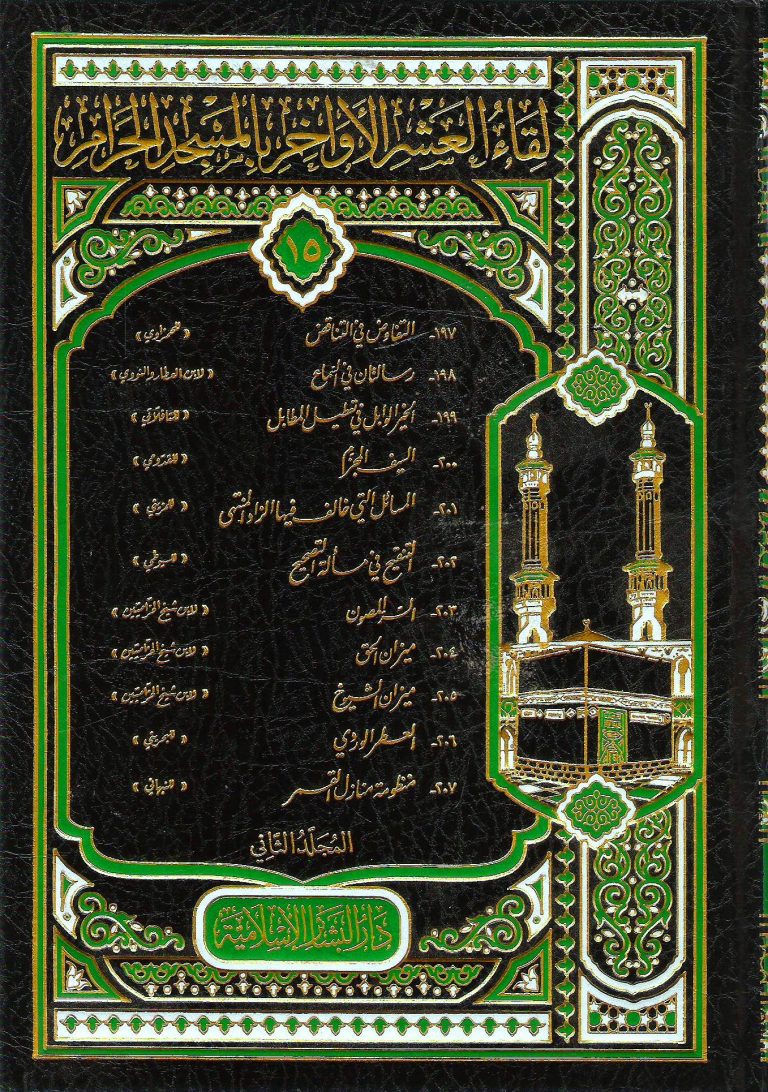 لِقَاءُ العَشْرِ الأَوَاخِرِ بِالمَسْجِدِ الحَرَامِ
١٥
١٩٧- التفاوض في التناقض «للحمزاوي»
١٩٨- رسالتان في السماع «لابن العطار والنووي»
١٩٩- الخير الوابل في «للتافلاتي»
٢٠٠- السيف المجزم «للقدومي»
٢٠١- المسائل التي خالف فيها الزاد المنتهى
٢٠٢- التنقيح في مسألة التصحيح «للسيوطي»
٢٠٣- السر المصون «لابن شيخ الحزاميين»
٢٠٤- ميزان الحق «لابن شيخ الحزاميين»
٢٠٥- ميزان الشيوخ «لابن شيخ الحزاميين»
٢٠٦- العطر الوردي
٢٠٧- منظومة منازل القمر «للنبهاني»
المُجَلَّدُ الثَّانِي
دَارُ البَشَائِرِ الإِسْلَامِيَّة